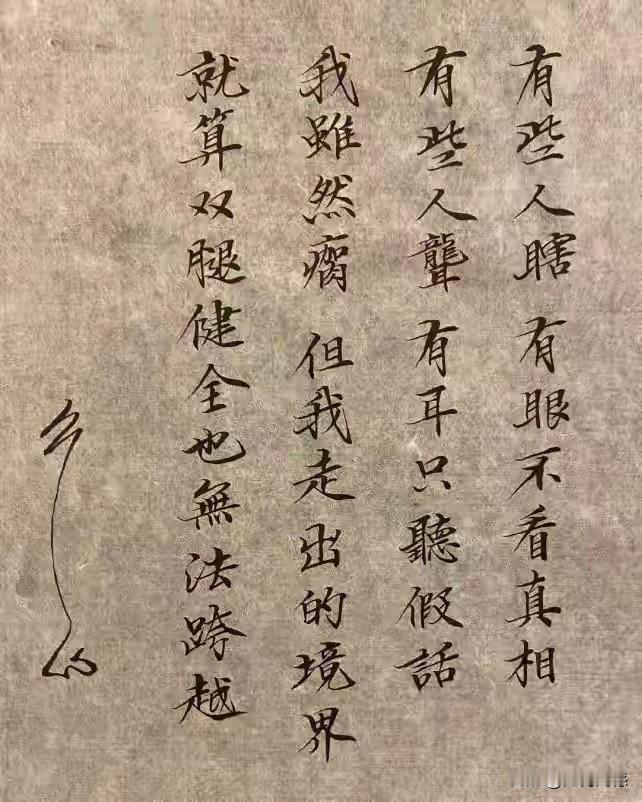 有些人瞎 有眼不看真相
有些人聾 有耳只聽假話
我雖然瘸 但我走出的境界
就算双腿健全也無法跨越